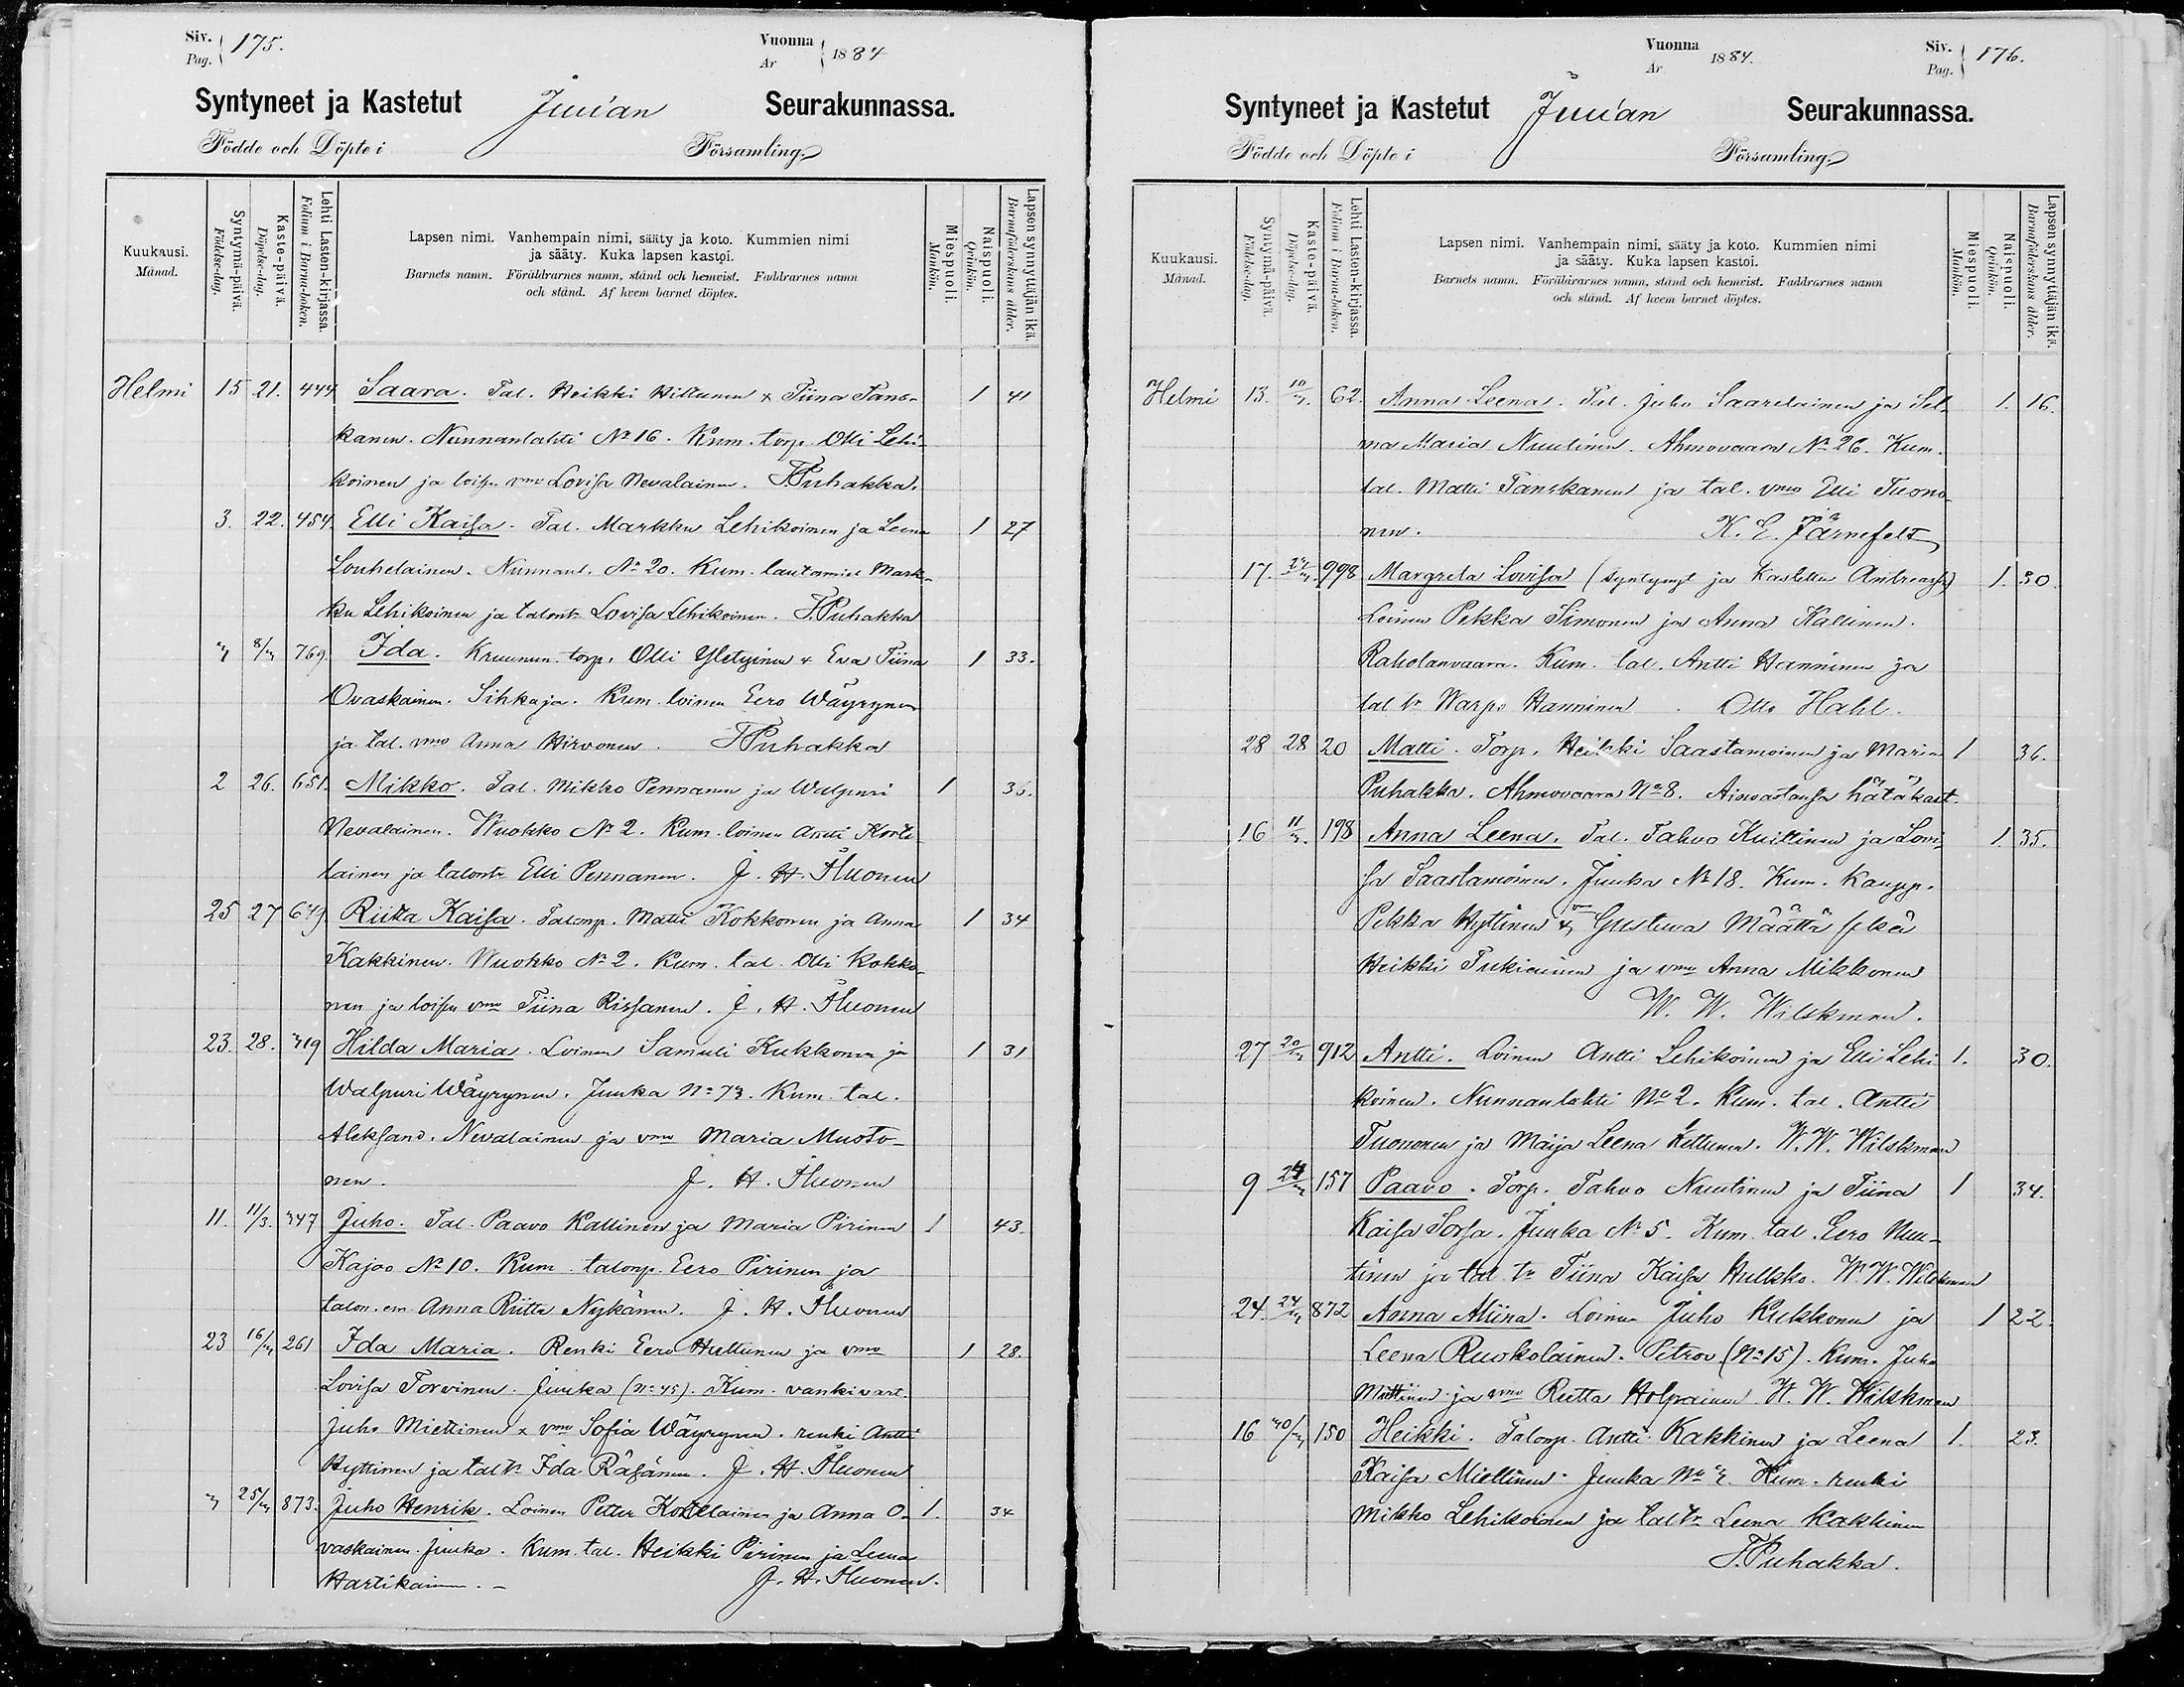 Siv. Pag. 175. Vuonna År 1884
Syntyneet ja Kastetut Juuan Seurakunnassa.
Födde och Döpte i Församling.
Kuukausi. Månad. Syntymä-päivä. Födelse-dag. Kaste-päivä. Döpelse-dag. Lehti Lasten-kirjassa. Folium i Barna-boken. Lapsen nimi. Vanhempain nimi, sääty ja koto. Kummien nimi ja sääty. Kuka lapsen kastoi. Barnets namn. Föräldrarnes namn, stånd och hemvist. Faddrarnes namn och stånd. Af hvem barnet döptes. Miespuoli. Mankön. Naispuoli. Qvinkön. Lapsen synnyttäjän ikä. Barnaföderskans ålder.
Helmi 15 21. 444 Saara. Tal. Heikki Hiltunen & Tiina Tans- 1 41
kanen. Nunnanlahti No 16. Kum. torp. Olli Lehi-
koinen ja loisen vmo Lovisa Nevalainen. T. Puhakka.
3. 22. 454 Elli Kaisa. Tal. Markku Lehikoinen ja Leena 1 27
Louhelainen. Nunnanl. No 20. Kum. lautamies Mark-
ku Lehikoinen ja talontr Lovisa Lehikoinen. T. Puhakka
3 8/3 769. Ida. Kruunun torp. Olli Yletyinen & Eva Tiina 1 33.
Ovaskainen. Sihkaja. Kum. loinen Eero Wäyrynen
ja tal. vmo Anna Hirvonen. T. Puhakka
2 26. 651. Mikko. Tal. Mikko Pennanen ja Walpuri 1 36.
Nevalainen. Wuokko No 2. Kum. loinen Antti Korte-
lainen ja talontr Elli Pennanen. J. H. Huonen
25 27 649 Riitta Kaisa. Talonp. Matti Kokkonen ja Anna 1 34
Kakkinen. Wuokko No 2. Kum. tal. Olli Kokko-
nen ja loisen vmo Tiina Rissanen. J. H. Huonen
23. 28. 319 Hilda Maria. Loinen Samuli Kukkonen ja 1 31
Walpuri Wäyrynen. Juuka No 73. Kum. tal.
Aleksand. Nevalainen ja vmo Maria Musto-
nen. J. H. Huonen
11. 11/3. 347 Juho. Tal. Paavo Kallinen ja Maria Pirinen 1 43.
Kajoo No 10. Kum. talonp. Eero Pirinen ja
talon. em. Anna Riitta Nykänen. J. H. Huonen
23 16/3 261 Ida Maria. Renki Eero Huttunen ja vmo 1 28.
Lovisa Torvinen. Juuka (No 45). Kum. vankivart.
Juho Miettinen & vmo Sofia Wäyrynen. renki Antti
Hyttinen ja taltr Ida Räsänen. J. H. Huonen
3 25/3 873. Juho Henrik. Loinen Petter Kortelainen ja Anna O- 1. 34
vaskainen. Juuka. Kum. tal. Heikki Pirinen ja Leena
Hartikainen. J. H. Huonen.
Vuonna År 1884. Siv. Pag. 176.
Syntyneet ja Kastetut Juuan Seurakunnassa.
Födde och Döpte i Församling.
Kuukausi. Månad. Syntymä-päivä. Födelse-dag. Kaste-päivä. Döpelse-dag. Lehti Lasten-kirjassa. Folium i Barna-boken. Lapsen nimi. Vanhempain nimi, sääty ja koto. Kummien nimi ja sääty. Kuka lapsen kastoi. Barnets namn. Föräldrarnes namn, stånd och hemvist. Faddrarnes namn och stånd. Af hvem barnet döptes. Miespuoli. Mankön. Naispuoli. Qvinkön. Lapsen synnyttäjän ikä. Barnaföderskans ålder.
Helmi 13. 10/3. 62. Anna Leena. Tal. Juho Saarelainen ja Sel- 1. 16.
ma Maria Nuutinen. Ahmovaara No 26. Kum.
tal. Matti Tanskanen ja tal. vmo Elli Tuono-
nen. K. E. Järnefelt
17. 998 Margreta Lovisa (syntynyt ja kastettu Antreassa) 1. 30.
Loinen Pekka Simonen ja Anna Kallinen.
Raholanvaara. Kum. tal. Antti Hanninen ja
tal. tr Warpu Hanninen. Otto Hahl.
28 28 20 Matti. Torp. Heikki Saastamoinen ja Maria 1 36.
Puhakka. Ahmovaara No 8. Ainoastansa hätäkast.
16 11/3. 198 Anna Leena. Tal. Tahvo Kuittinen ja Lovi- 1. 35.
sa Saastamoinen. Juuka No 18. Kum. Kaupp.
Pekka Hyttinen & vmo Gustuva Määttä sekä
Heikki Tukiainen ja vmo Anna Mikkonen
W. W. Wilskman.
27 20/3 912 Antti. Loinen Antti Lehikoinen ja Elli Lehi- 1. 30.
koinen. Nunnanlahti No 2. Kum. tal. Antti
Tuononen ja Maija Leena Kettunen. W. W. Wilskman
9 24/3 157 Paavo. Torp. Tahvo Nuutinen ja Tiina 1 34.
Kaisa Sorsa. Juuka No 5. Kum. tal. Eero Nuu-
tinen ja tal. tr Tiina Kaisa Hulkko. W. W. Wilskman
24. 24/3 872 Anna Aliina. Loinen Juho Kukkonen ja 1 22.
Leena Ruokolainen. Petrov (No 15). Kum. Juho
Miettinen ja vmo Reetta Holpainen. W. W. Wilskman
16 30/3 150 Heikki. Talonp. Antti Kakkinen ja Leena 1. 23.
Kaisa Miettinen. Juuka No 3. Kum. renki
Mikko Lehikoinen ja taltr Leena Kakkinen
T. Puhakka.